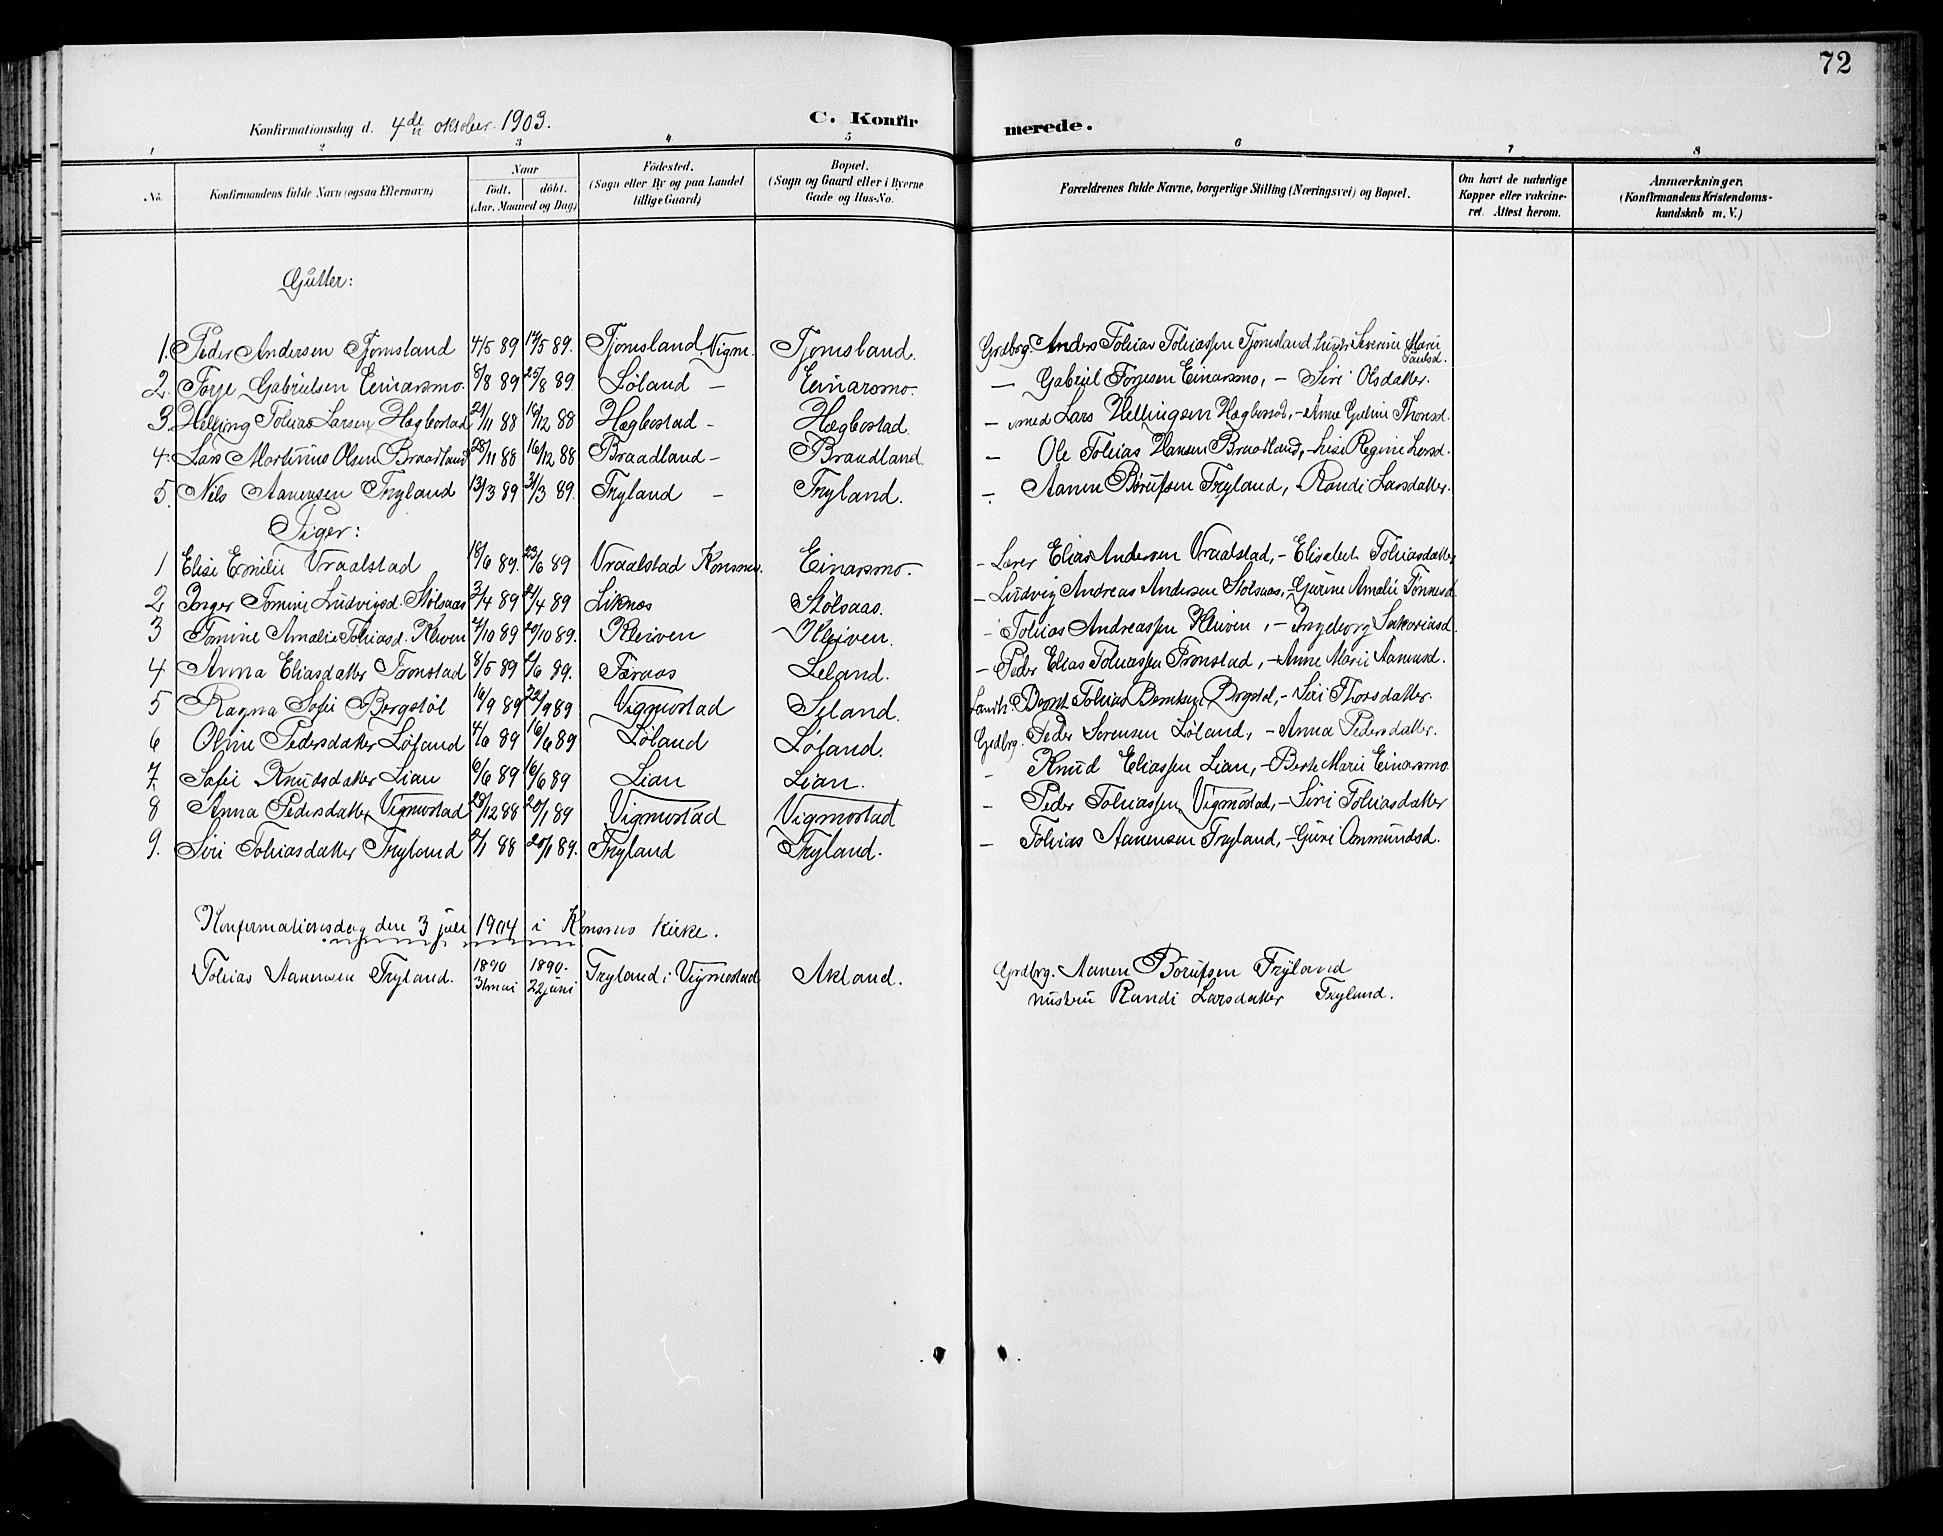 72
Konfirmationsdag d. 4de oktober 1903.
C. Konfirmerede.
1 2 3 4 5 6 7 8
No.
Konfirmandens fulde Navn (ogsaa Efternavn)
Naar
födt. döbt.
(Aar, Maaned og Dag)
Födested.
(Sogn eller By og paa Landet
tillige Gaard)
Bopæl.
(Sogn og Gaard eller i Byerne
Gade og Hus-No.
Forældrenes fulde Navne, borgerlige Stilling (Næringsvei) og Bopæl.
Om havt de naturlige
Kopper eller vakcine-
ret. Attest herom.
Anmærkninger.
(Konfirmandens Kristendoms-
kundskab m. V.)
Gutter:
1. Peder Andersen Tjomsland 4/5 89 17/5 89. Tjomsland Vigm. Tjomsland. Grdbrg. Anders Tobias Tobiassen Tjomsland Severine Marie
Paulsd.
2. Torje Gabrielsen Einarsmo. 8/8 89 25/8 89. Løland — Einarsmo. — Gabriel Torjesen Einarsmo, — Siri Olsdatter.
3. Helling Tobias Larsen Hægbostad 29/11 88 16/12 88 Hægbostad — Hægbostad. — Lars Hellingsen Hægbostad, — Anne Gurine Thorsd.
4. Lars Martinius Olsen Braadland 28/11 88 16/12 88 Braadland — Braadland. — Ole Tobias Hansen Braadland, — Lise Regine Larsd.
5. Nils Aanensen Tryland 13/3 89 31/3 89. Tryland — Tryland. — Aanen Börufsen Tryland, — Randi Larsdatter.
Piger:
1 Elise Emilie Vraalstad 18/6 89. 23/6 89 Vraalstad Konsmo. Einarsmo. — Lærer Elias Andersen Vraalstad, — Elisabet Tobiasdatter
2 Inger Tomine Ludvigsd. Stölsaas 3/4 89 21/4 89 Liknes Stölsaas. — Ludvig Andreas Andersen Stölsaas, — Gurine Amalie Tönnesd.
3 Tomine Amalie Tobiasd. Kleiven 7/10 89 20/10 89. Kleiven Kleiven. — Tobias Andreassen Kleiven, — Ingeborg Sakariasd.
4 Anna Eliasdatter Tronstad 8/5 89 2/6 89. Faraas Leland. — Peder Elias Tobiassen Tronstad, — Anne Marie Aanensd.
5 Ragna Sofie Bergstöl 16/9 89 22/9 89 Vigmostad Seland. Landh. Berent Tobias Berntsen Bergstöl, — Siri Thorsdatter.
6 Oline Pedersdatter Löland 4/6 89 16/6 89 Löland Löland. Grdbrg. Peder Sørensen Löland, — Anna Pedersdatter.
7 Sofie Knudsdatter Lian 6/6 89 16/6 89 Lian Lian. — Knud Eliassen Lian, — Berte Marie Einarsmo
8 Anna Pedersdatter Vigmostad 28/12 88 20/1 89 Vigmostad Vigmostad — Peder Tobiassen Vigmostad, — Siri Tobiasdatter
9. Siri Tobiasdatter Tryland 2/1 88 20/1 89. Tryland Tryland. — Tobias Aanensen Tryland, — Guri Omundsd.
Konfirmationsdag den 3 juli 1904 i Konsmo Kirke.
Tobias Aanensen Tryland. 1890 31 mai 1890. 22 juni Tryland i Vigmostad Akland. Grdbrg. Aanen Börufsen Tryland
hustru Randi Larsdatter Tryland.